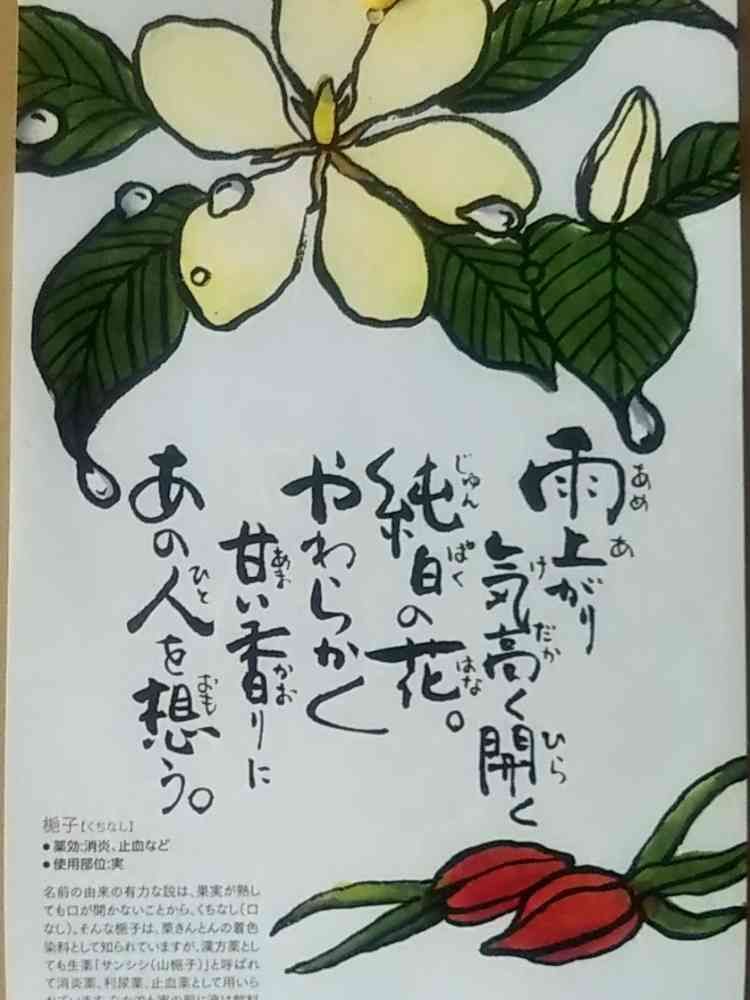 雨上がり
気高く開く
純白の花。
やわらかく
甘い香りに
あの人を想う。
梔子【くちなし】
●薬効:消炎、止血など
●使用部位:実
名前の由来の有力な説は、果実が熟し
ても口が開かないことから、くちなし(口
なし)。そんな梔子は、栗きんとんの着色
染料として知られていますが、漢方薬とし
ても生薬「サンシシ(山梔子)」と呼ばれ
て消炎薬、利尿薬、止血薬として用いら